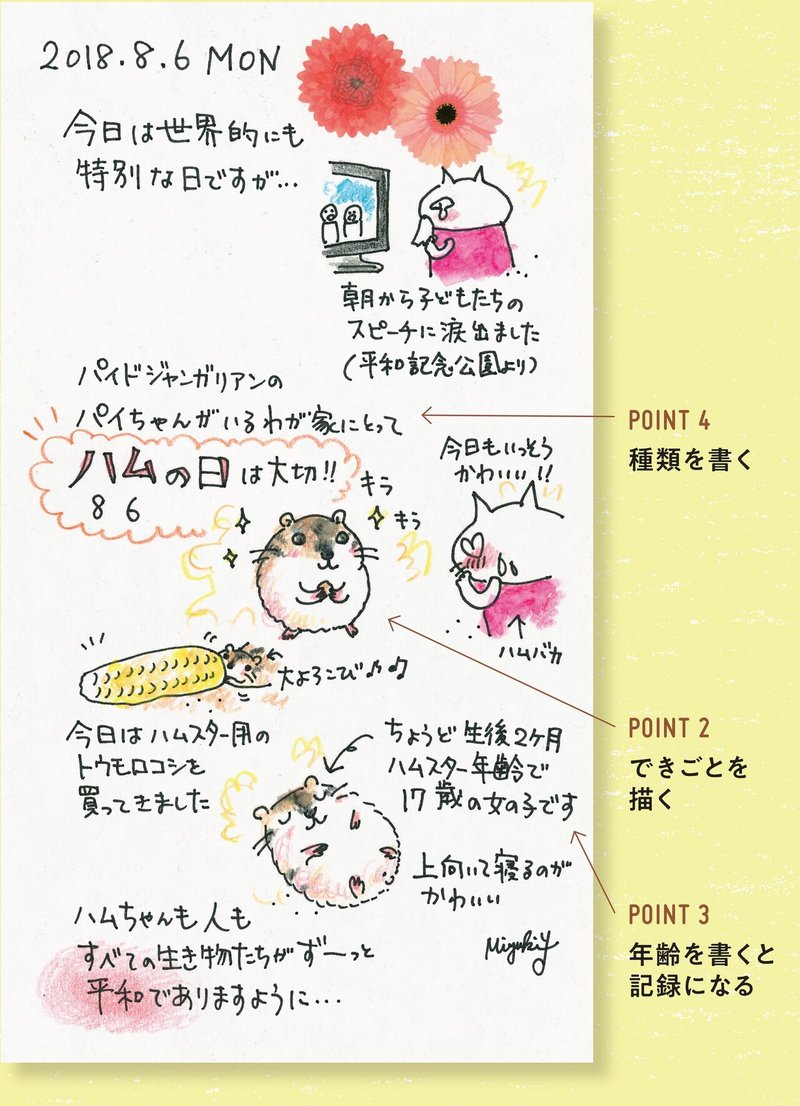 2018.8.6 MON
今日は世界的にも
特別な日ですが…
朝から子どもたちの
スピーチに涙出ました
(平和記念公園より)
パイドジャンガリアンの
パイちゃんがいるわが家にとって
ハムの日は大切!!
8 6
キラ
キラ
今日もいっそう
かわいい!!
ハムバカ
大よろこび♪♫
今日はハムスター用の
トウモロコシを
買ってきました
ちょうど生後2ヶ月
ハムスター年齢で
17歳の女の子です
上向いて寝るのが
かわいい
ハムちゃんも人も
すべての生き物たちがず〜っと
平和でありますように…
MiyukiY
POINT 4
種類を書く
POINT 2
できごとを
描く
POINT 3
年齢を書くと
記録になる